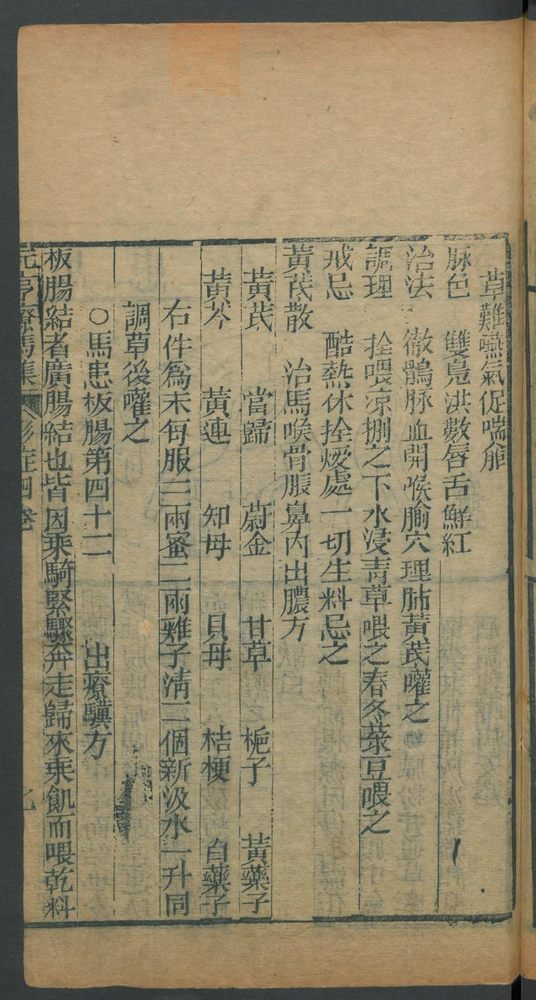 草難嚥氣促喘麄
脉色　雙鳧洪數唇舌鮮紅
治法　徹鶻脉血開喉腧穴理肺黃芪嚾之
調理　拴喂凉捌之下水浸青草喂之春冬菉豆喂之
戒忌　酷熱休拴煖處一切生料忌之
黃芪散　治馬喉骨脹鼻內出膿方
黃芪　當歸　蔚金　甘草　梔子　黃藥子
黃芩　黃連　知母　貝母　桔梗　白藥子
右件爲末每服三兩蜜二兩雞子淸二個新汲水一升同
調草後嚾之
○馬患板腸第四十二　出療驥方
板腸結者廣腸結也皆因乘騎緊驟奔走歸來乘飢而喂乾料
元亨療馬集　四卷